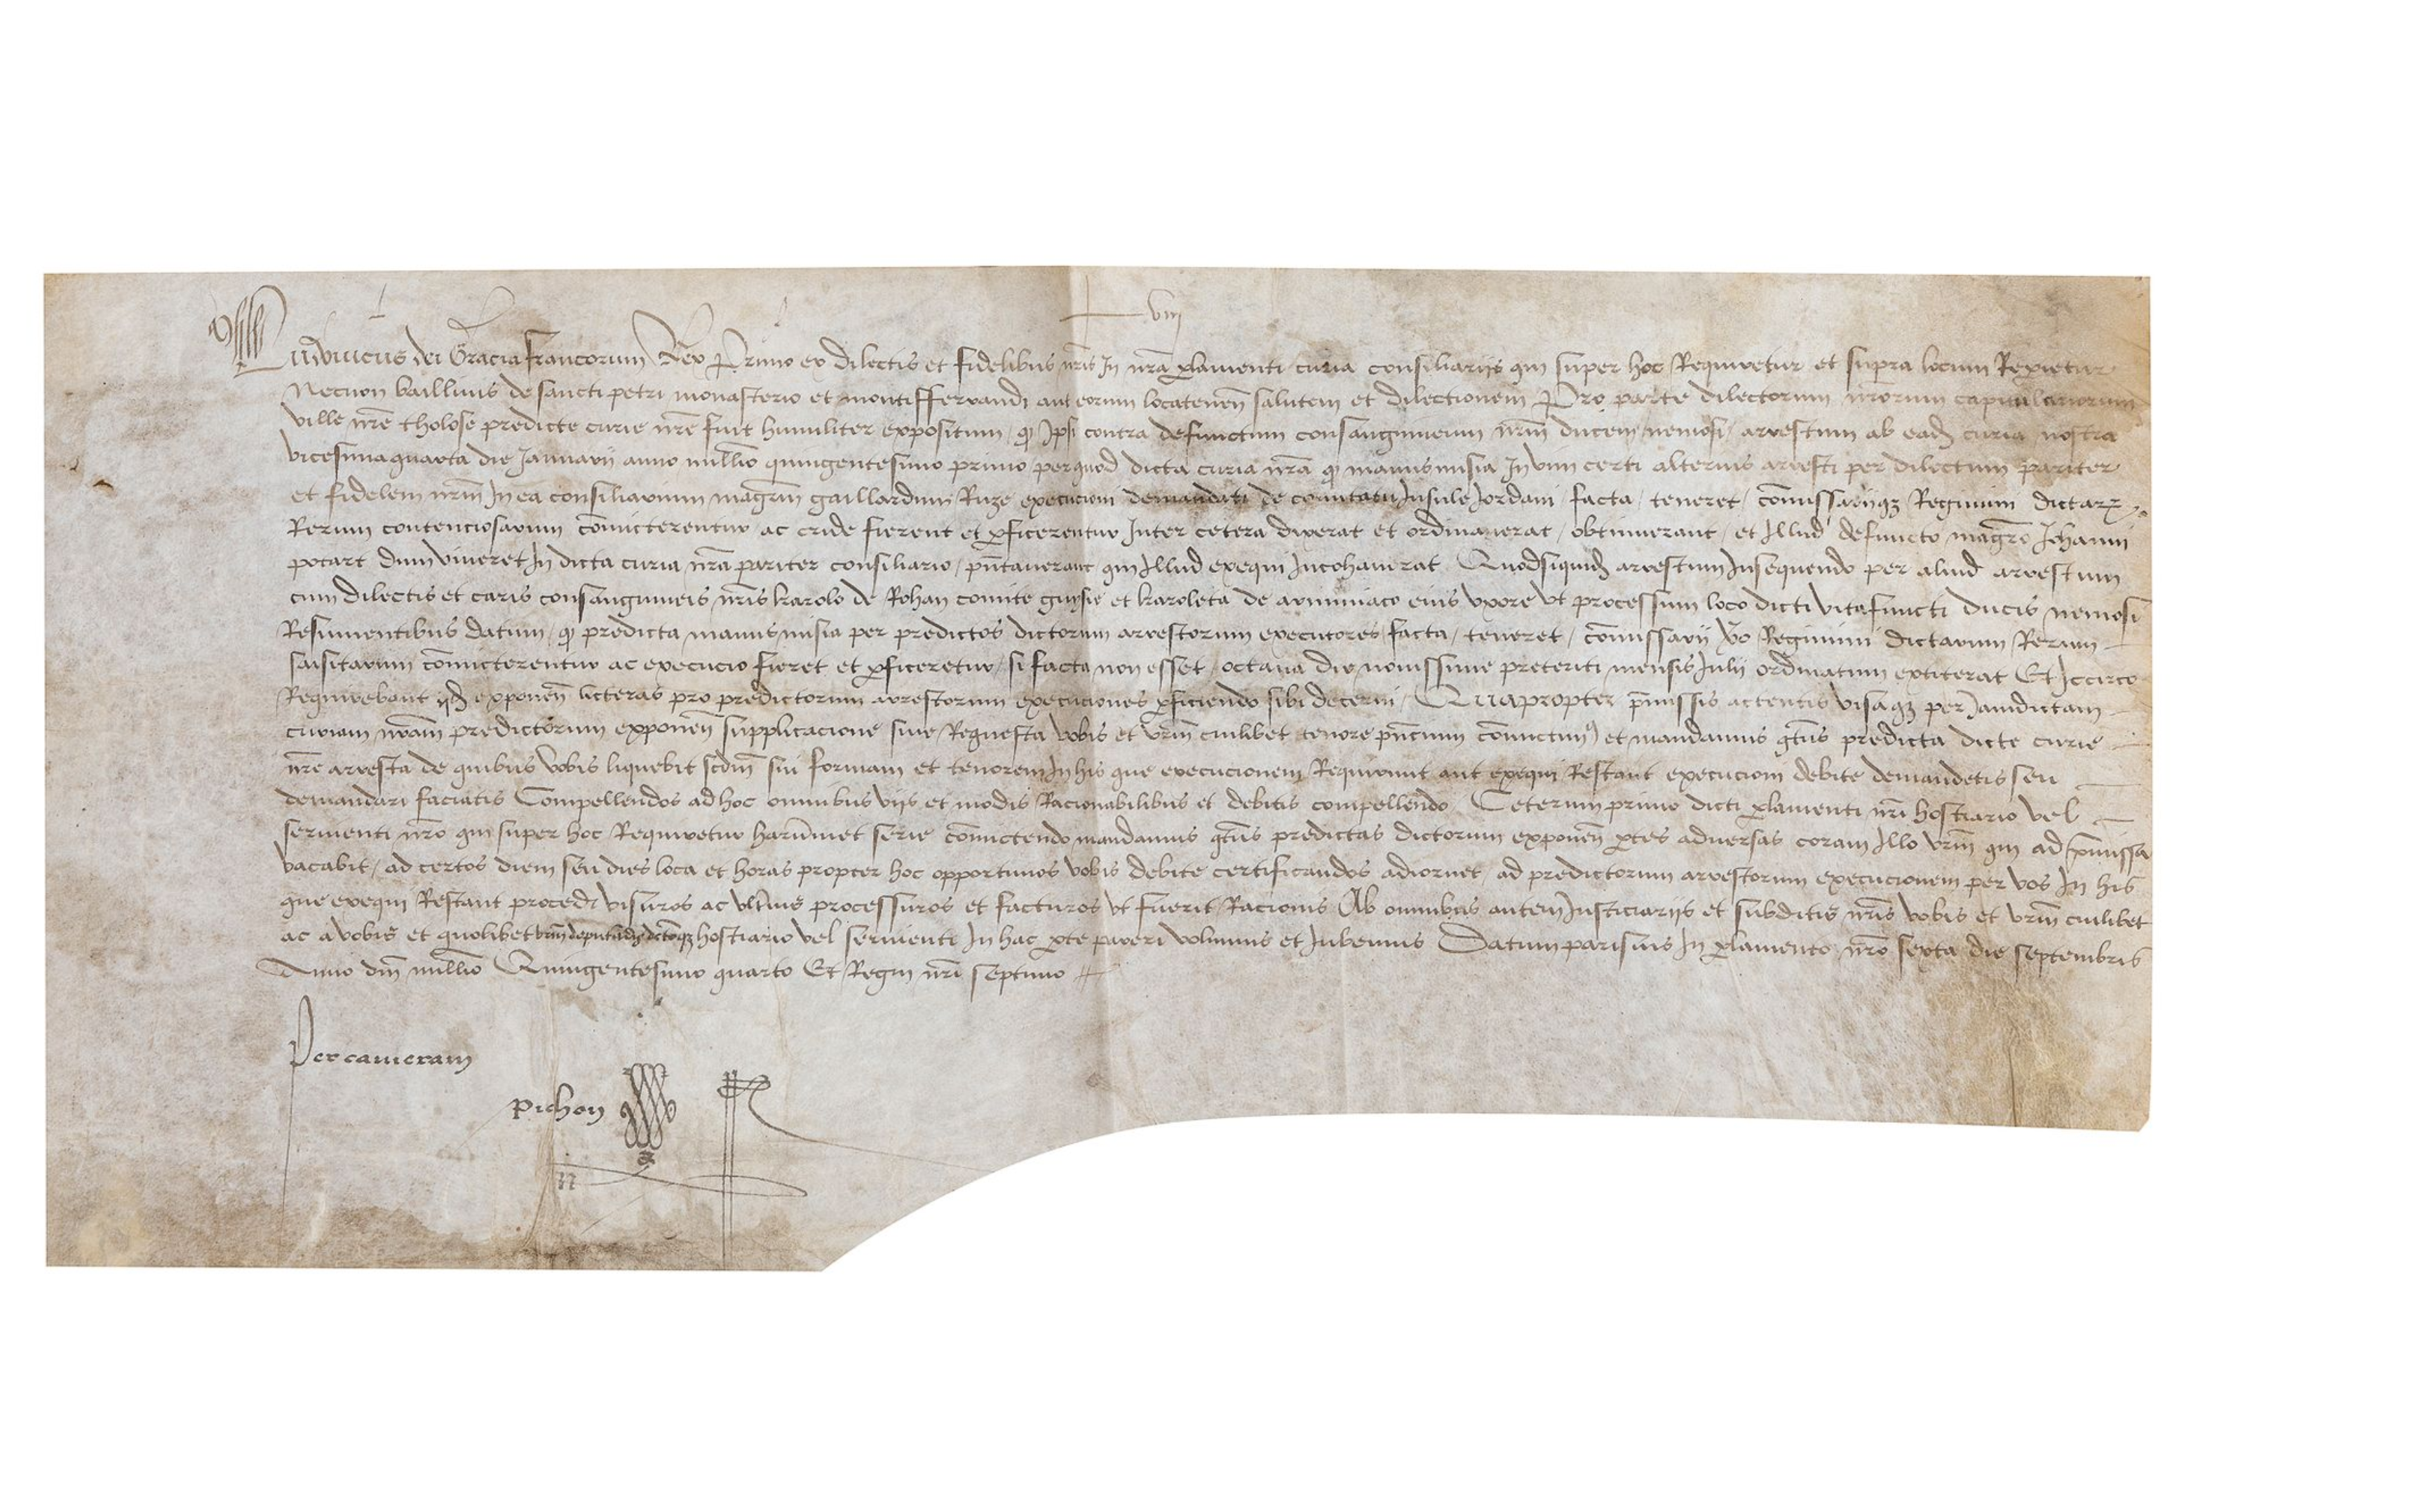 viij
Ludovicus dei Gracia francorum Rex Primo ex dilectis et fidelibus nr̃is In nr̃a ꝑlamenti curia consiliariis qui super hoc Requiretur et supra locum Repietur
Necnon baillivis de sancti petri monasterio et montifferrandi aut eorum locatenen̄ salutem et dilectionem Pro parte dilectorum nr̃orum capitulariorum
ville nr̃e tholose predicte curie nr̃e fuit humiliter expositum / qꝫ Ipsi contra defunctum consanguineum nr̃m ducem nemosi / arrestum ab eadꝫ curia nostra
vicesimaquarta die Januarii anno millio quingentesimo primo per quod dicta curia nr̃a qꝫ manusmisia In vim certi alterius arresti per dilectum pariter
et fidelem nr̃m In ea consiliarium magr̃m gaillardum Ruze execucioni demandati de comitatu Insule Jordani / facta / teneret / com̄issariiqꝫ Regimini dictarꝝ
Rerum contenciosarum com̄icterentur ac cride fierent et ꝑficerentur Inter cetera dixerat et ordinaverat / obtinuerant / et Illud defuncto magr̃o Johanni
potart dum viveret In dicta curia nr̃a pariter consiliario / pñtaverant qui Illud exequi Incohaverat Quodsiquidꝫ arrestum Insequendo per aliud arrestum
cum dilectis et caris consanguineis nr̃is karolo de Rohan comite guysie et karoleta de arminiaco eius uxore ut processum loco dicti vitafuncti ducis nemosi
Resumentibus datum / qꝫ predicta manusmisia per predictos dictorum arrestorum executores facta / teneret / com̄issarii v̄o Regimini dictarum Rerum
saisitarum com̄icterentur ac execucio fieret et ꝑficeretur / si facta non esset / octava die novissime preteriti mensis Julii ordinatum extiterat Et Iccirco
Requirebant iidꝫ exponen̄ licteras pro predictorum arrestorum execuciones ꝑficiendo sibi decerni / Quapropter p̄missis actentis visaqꝫ per Jamdictam
curiam nr̃am predictorum exponen̄ supplicacione sive Requesta vobis et vr̃m cuilibet tenore pñcium com̄ictimꝰ et mandamus qt̃us predicta dicte curie
nr̃e arresta de quibus vobis liquebit scdm̄ sui formam et tenorem In his que execucionem Requirunt aut exequi Restant execucioni debite demandetis seu
demandari faciatis Compellendos ad hoc omnibus viis et modis Racionabilibus et debitis compellendo Ceterum primo dicti ꝑlamenti nr̃i hostiario vel
servienti nr̃o qui super hoc Requiretur harum̄met serie com̄ictendo mandamus qt̃us predictas dictorum exponen̄ ꝑtes adversas coram Illo vr̃m qui ad p̄missa
vacabit / ad certos diem seu dies loca et horas propter hoc opportunos vobis debite certificandos adiornet / ad predictorum arrestorum execucionem per vos In his
que exequi Restant procedi visuros ac ult̃ius processuros et facturos ut fuerit Racionis Ab omnibus autem Justiciariis et subditis nr̃is vobis et vr̃m cuilibet
ac a vobis et quolibet vr̃m deputandis dictoqꝫ hostiario vel servienti In hac ꝑte pareri volumus et Jubemus Datum parisius In ꝑlamento nr̃o sexta die septembris
Anno dm̄ millio Quingentesimo quarto Et Regni nr̃i septimo
Per cameram
Pichon